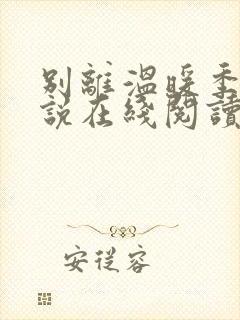 別離溫暖季
說在綫閱讀
安從容